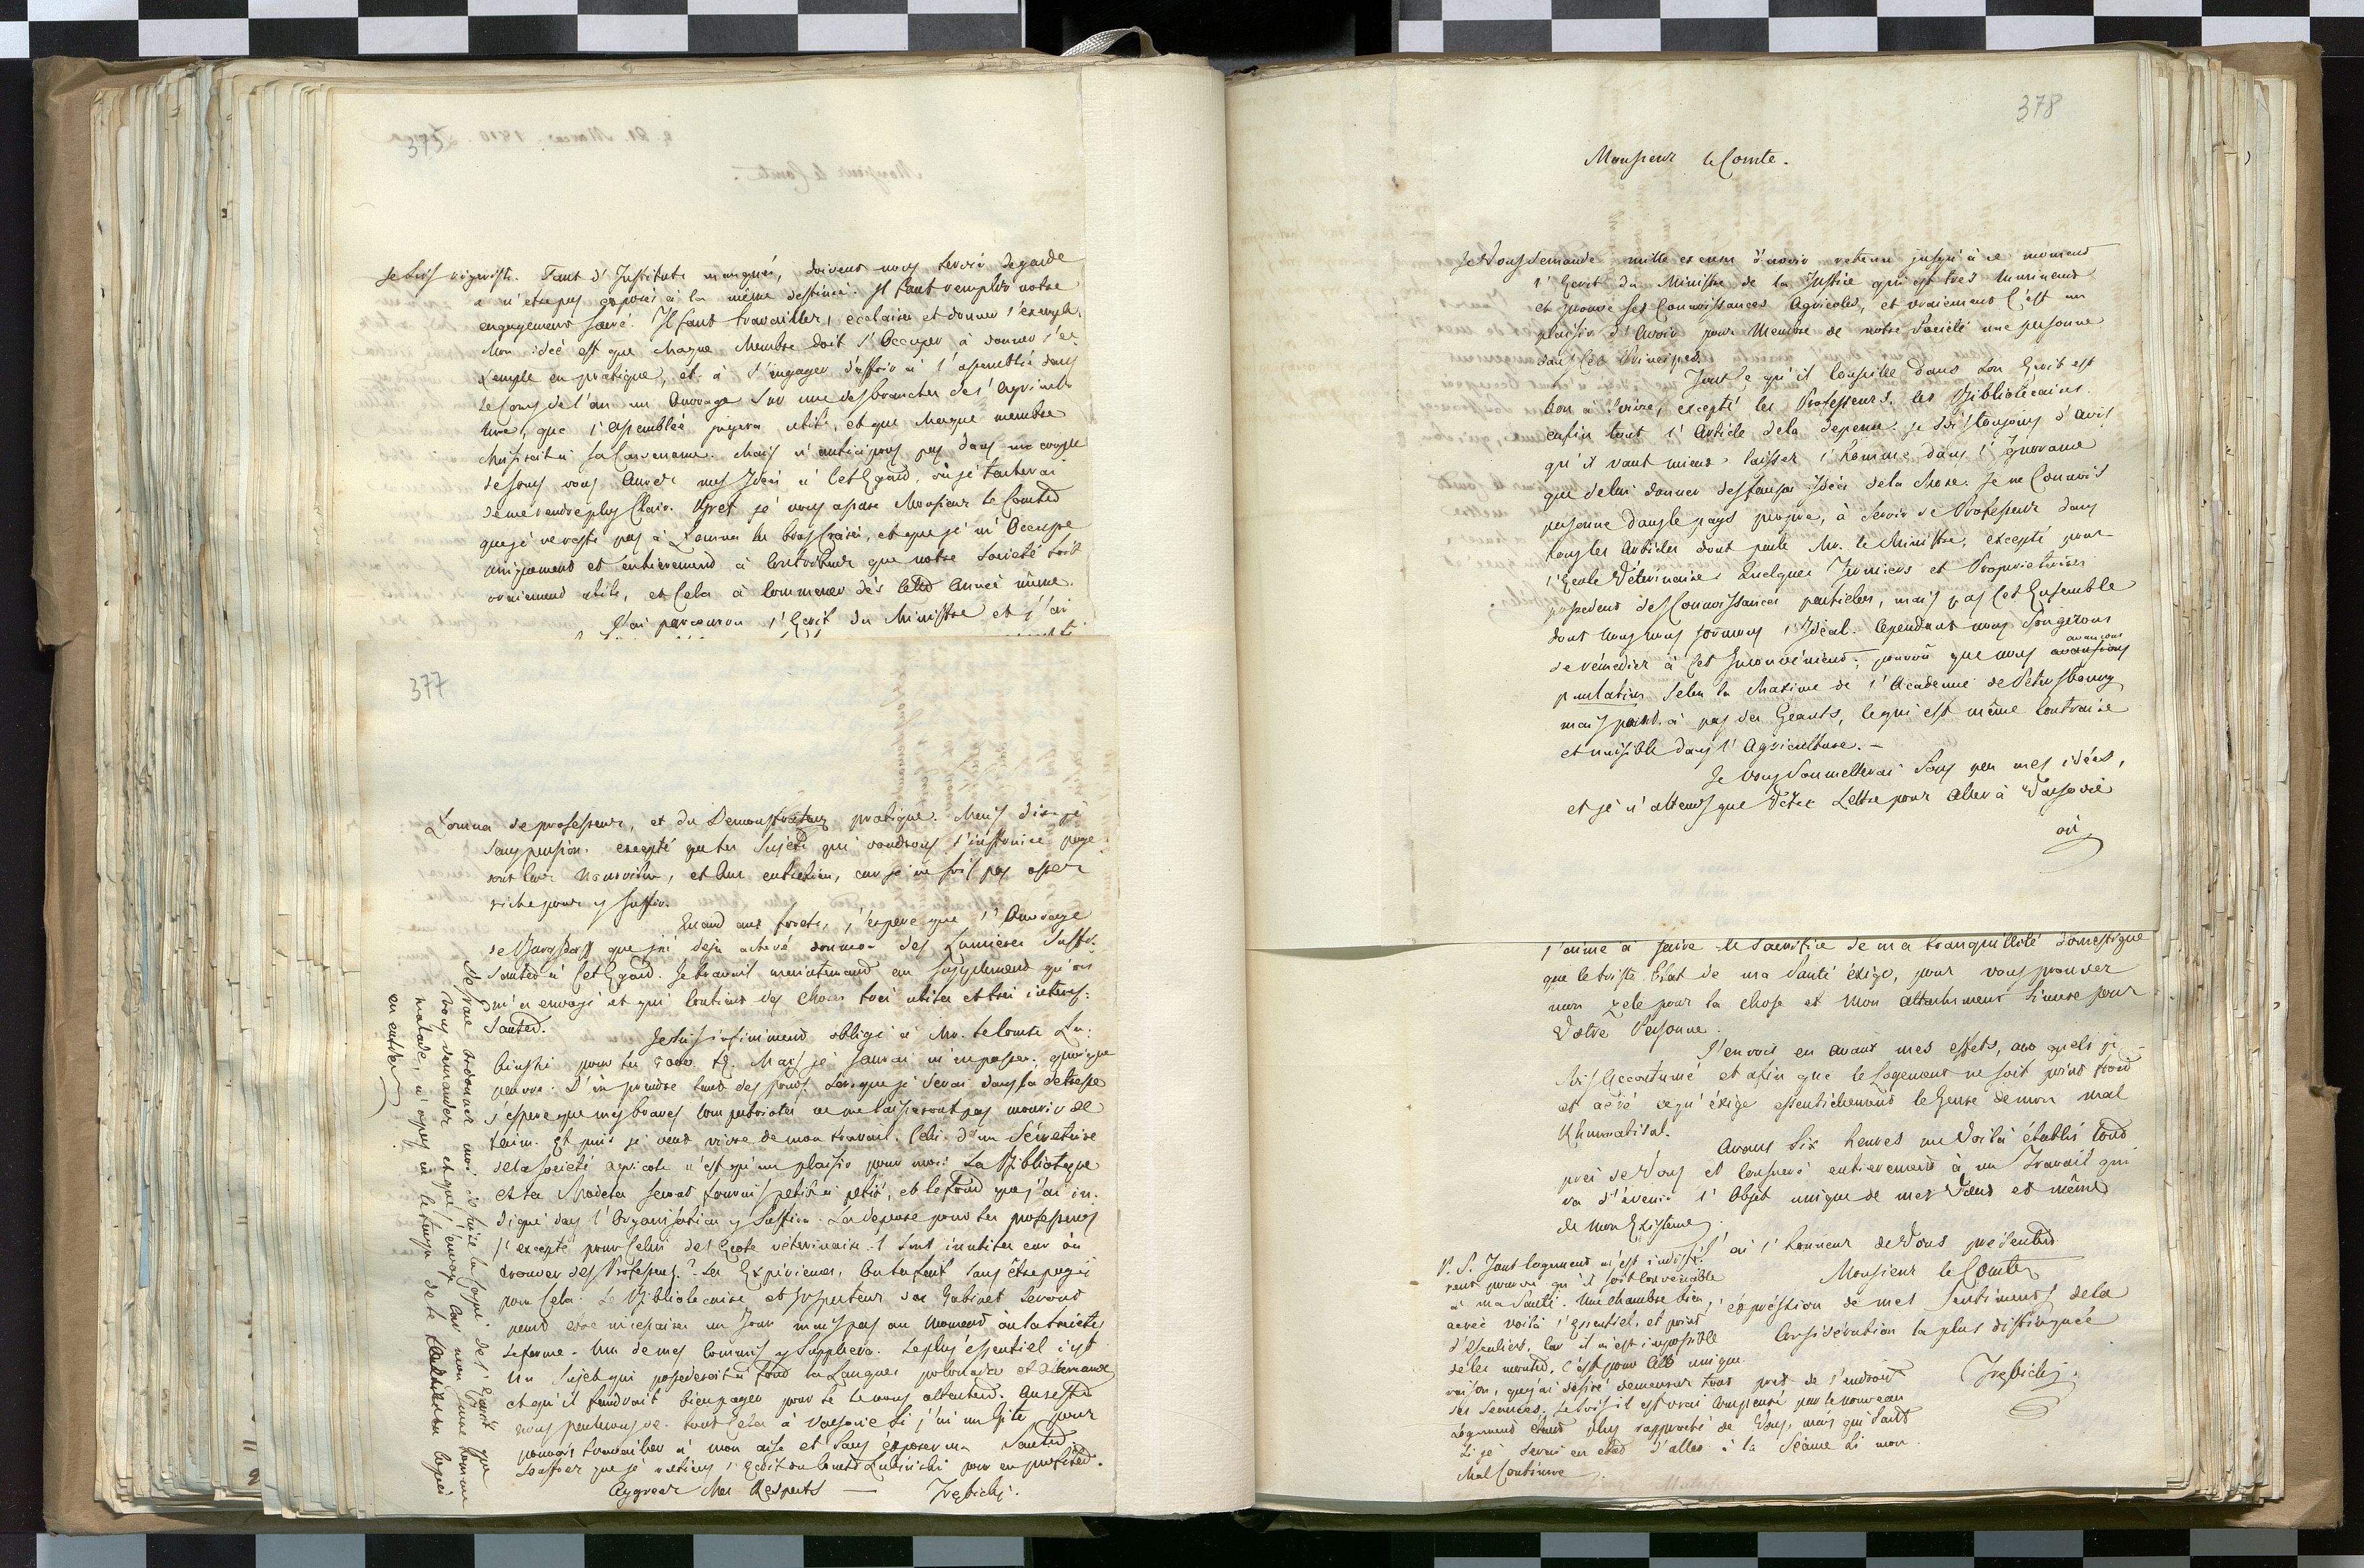 375
je suis rigoriste. Tant d'Instituts manqués, doivent nous servir de garde
a n'etre pas exposés à la même destinée. Il faut remplir notre
engagement sacré. Il faut travailler, eclairer et donner l'exemple.
Mon idée est que chaque Membre doit s'Occuper à donner l'ex-
emple en pratique, et à s'engager d'offrir à l'assemblée dans
le cours de l'an un Ouvrage sur une des branches de l'agricul-
ture, que l'assemblée jugera utile, et que chaque membre
choisirait à sa Convenance. Mais n'anticipons pas dans une couple
de jours vous aurez mes Idées à cet Egard, où je tacherai
de me rendre plus Clair. Bref je vous assure Monsieur le Comte
que je ne reste pas à Łomna les bras croisés, et que je m'Occupe
uniquement et entierement à Contribuer que notre Societé soit
vraiement utile, et Cela à Commencer dès cette Année même.
J'ai parcouru l'Ecrit du Ministre et j'ai
377
Łomna de professeur, et du Demonstrateur pratique. Mais disje
sans pension. excepté que les Sujets qui voudrons s'instruire paye-
ront leur Nourriture, et leur entretien, car je ne suis pas assez
riche pour y suffir.
Quand aux forets, j'espere que l'Ouvrage
de Burgsdorff que j'ai deja achevé donnera des Lumieres suffi-
santes à cet Egard. Je travail maintenand au Supplement qu'on
m'a envoyé et qui Contient des choses très utiles et très interes-
santes.
Je suis infiniment obligé à Mr. le Comte Lu-
binski pour les 5000 fl. Mais je saurai m'en passer, quoique
pauvre. D'en prendre tant des fonds. Lorsque je serai dans la detresse
j'espere que mes braves Compatriotes ne me laisseront pas mourir de
faim. Et puis je veux vivre de mon travail. Celui d'un Sécretaire
de la Societé agricole n'est qu'un plaisir pour moi. La Bibliotèque
et les Modeles seront fournis petit à petit, et le fond que j'ai in-
diqué dans l'Organisation y suffira. La depense pour les professeurs
(excepté pour Celui de l'Ecole véterinaire) sont inutiles car où
trouver des Professeurs? Les Expériences, On les fait sans être payé
pour Cela. Le Bibliotecaire et Inspecteur du Cabinet seront
peut etre necessaires un Jour mais pas au moment où la societé
se forme. Un de mes Commis y suppléera. Le plus éssentiel c'est
Un Sujet qui possederait à fond les Langues polonaise et allemande
et qu'il faudrait bien payer pour se le tenir attentend. Au reste
nous penchons sur tout Cela à Varsovie si j'ai un Gite pour
pouvoir travailler à mon aise et sans exposer ma Santé.
Souffrez que je retiens l'Ecrit du Comte Lubinski pour en profiter.
Aggreez Mes Respects — Trębicki.
De grace pardonnez moi si je laisse la copie de l'Ecrit que
Vous demandez et que j'envoye car mon jeune homme
malade, n'a pas eu le temps de le copier
en entier
378
Monsieur le Comte.
Je Vous demande mille excuses d'avoir retenu jusqu'à ce moment
l'Ecrit du Ministre de la Justice qui est tres lumineux
et prouve ses Connoissances Agricoles, et vraiement C'est un
plaisir d'Avoir pour Membre de notre Societé une personne
dans ses Principes.
Tout ce qu'il conseille dans son Ecrit est
bon à suivre, excepté les Professeurs, les Bibliotécaires
enfin tout l'Article de la depense. Je suis toujours d'avis
qu'il vaut mieux laisser l'homme dans l'Ignorance
que de lui donner des fausses Idées de la chose. Je ne Connois
personne dans le pays propre, à servir de Professeur dans
tous les Articles dont parle Mr. le Ministre, excepté pour
l'Ecole Véterinaire. Quelques Fermiers et Proprietaires
possedent des Connoissances partielles, mais pas Cet Ensemble
dont nous nous formons l'Idéal. Cependant nous songerons
de rémedier à Cet Inconvénient, pourvû que nous avansions
avancions
paulatim selon la Maxime de l'Academie de Petersbourg
mais point à pas des Geants, ce qui est même Contraire
et nuisible dans l'Agriculture. –
Je Vous soumetterai sous peu mes idées,
et je n'attens que Votre Lettre pour aller à Varsovie
où
j'aime à faire le sacrifice de ma tranquillité domestique
que le triste Etat de ma Santé éxige, pour vous prouver
mon zele pour la chose et mon attachement sincere pour
Votre Personne.
J'envois en avant mes effets, aux quels je
suis Accoutumé et afin que le Logement ne soit point froid
et aéré ce qu'éxige essentiellement le Genre de mon mal
Rhumatisal.
Avant six heures me Voilà établis tout
près de Vous et Consacré entierement à un Travail qui
va d'évenir l'Objet unique de mes Vœux et même
de mon Existence.
J'ai l'honneur de Vous présenter
Monsieur le Comte
l'éxpréssion de mes Sentimens de la
Considération la plus distinguée
Trębicki.
P. S. Tout logement m'est indiffé-
rent pourvu qu'il soit Convenable
à ma Santé. Une chambre bien
aerée voilà l'essentiel, et point
d'Escaliers, Car il m'est impossible
de les monter, c'est pour Cette unique
raison, que j'ai desiré demeurer tout pres de l'endroit
des Seances. Je suis il est vrai Compensé par le nouveau
Logement étant plus rapproché de Vous, mais qui sait
si je serai en etat d'aller à la Séance si mon
Mal Continue.